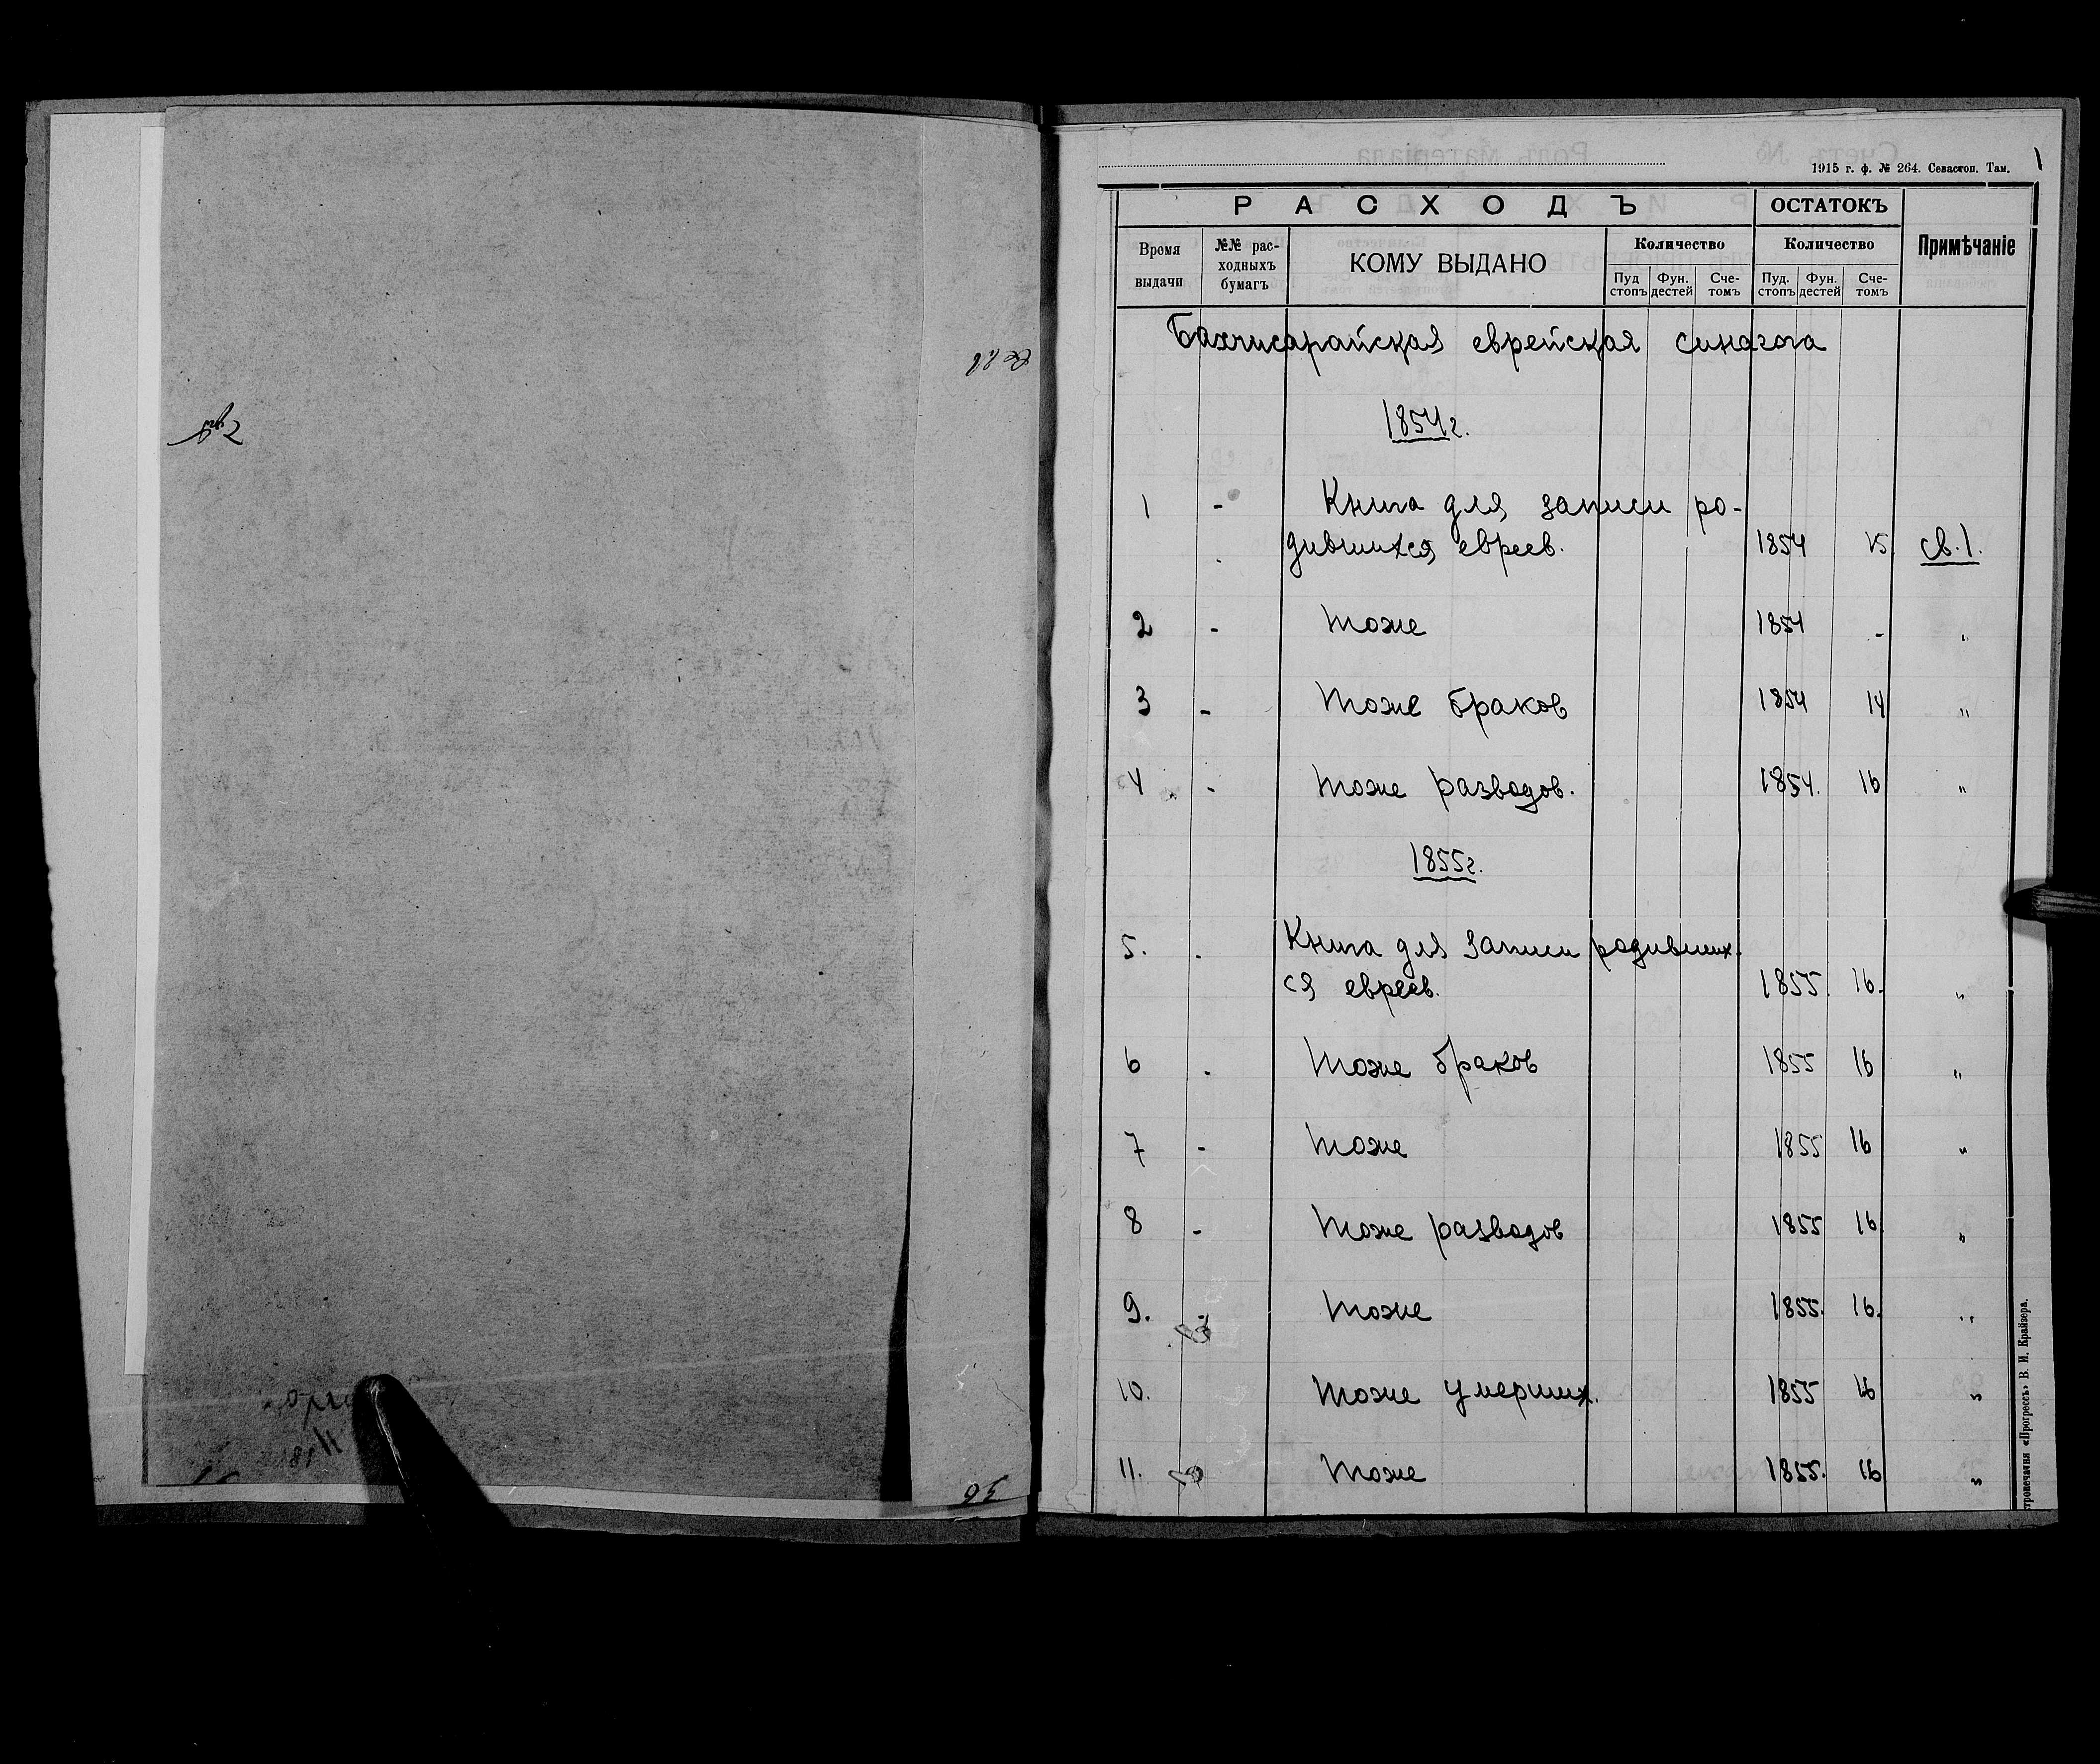 1915 г. ф. № 264. Севастоп. Там.
1
РАСХОДЪ ОСТАТОКЪ Примѣчаніе
Время выдачи №№ рас-ходныхъ бумагъ КОМУ ВЫДАНО Количество Количество
Пуд стопъ Фун. дестей Сче-томъ Пуд. стопъ Фун. дестей Сче-томъ
Бахчисарайская еврейская синагога
1854 г.
1 - Книга для записи ро-
дившихся евреев. 1854 15 св. 1.
2 - тоже 1854 - "
3 - тоже браков 1854 14 "
4 - тоже разводов. 1854. 16 "
1855 г.
5. - Книга для записи родивших-
ся евреев. 1855. 16. "
6 - тоже браков 1855 16 "
7 - тоже 1855 16 "
8 - тоже разводов 1855 16 "
9. - тоже 1855. 16. "
10. тоже умерших. 1855 16 "
11. тоже 1855. 16 "
«Прогрессъ» В. И. Крайзера.